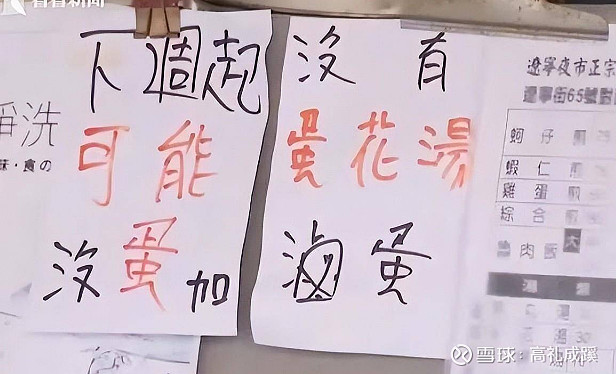 看看新聞
下週起
可能
沒蛋加
沒有
蛋花湯
滷蛋
洗
味·食の
遼寧夜市正宗
遼寧街65號對
蚵仔煎
蝦仁煎
雞蛋煎
綜合煎
魯肉飯 大
湯類
湯 30
雪球：高礼成蹊